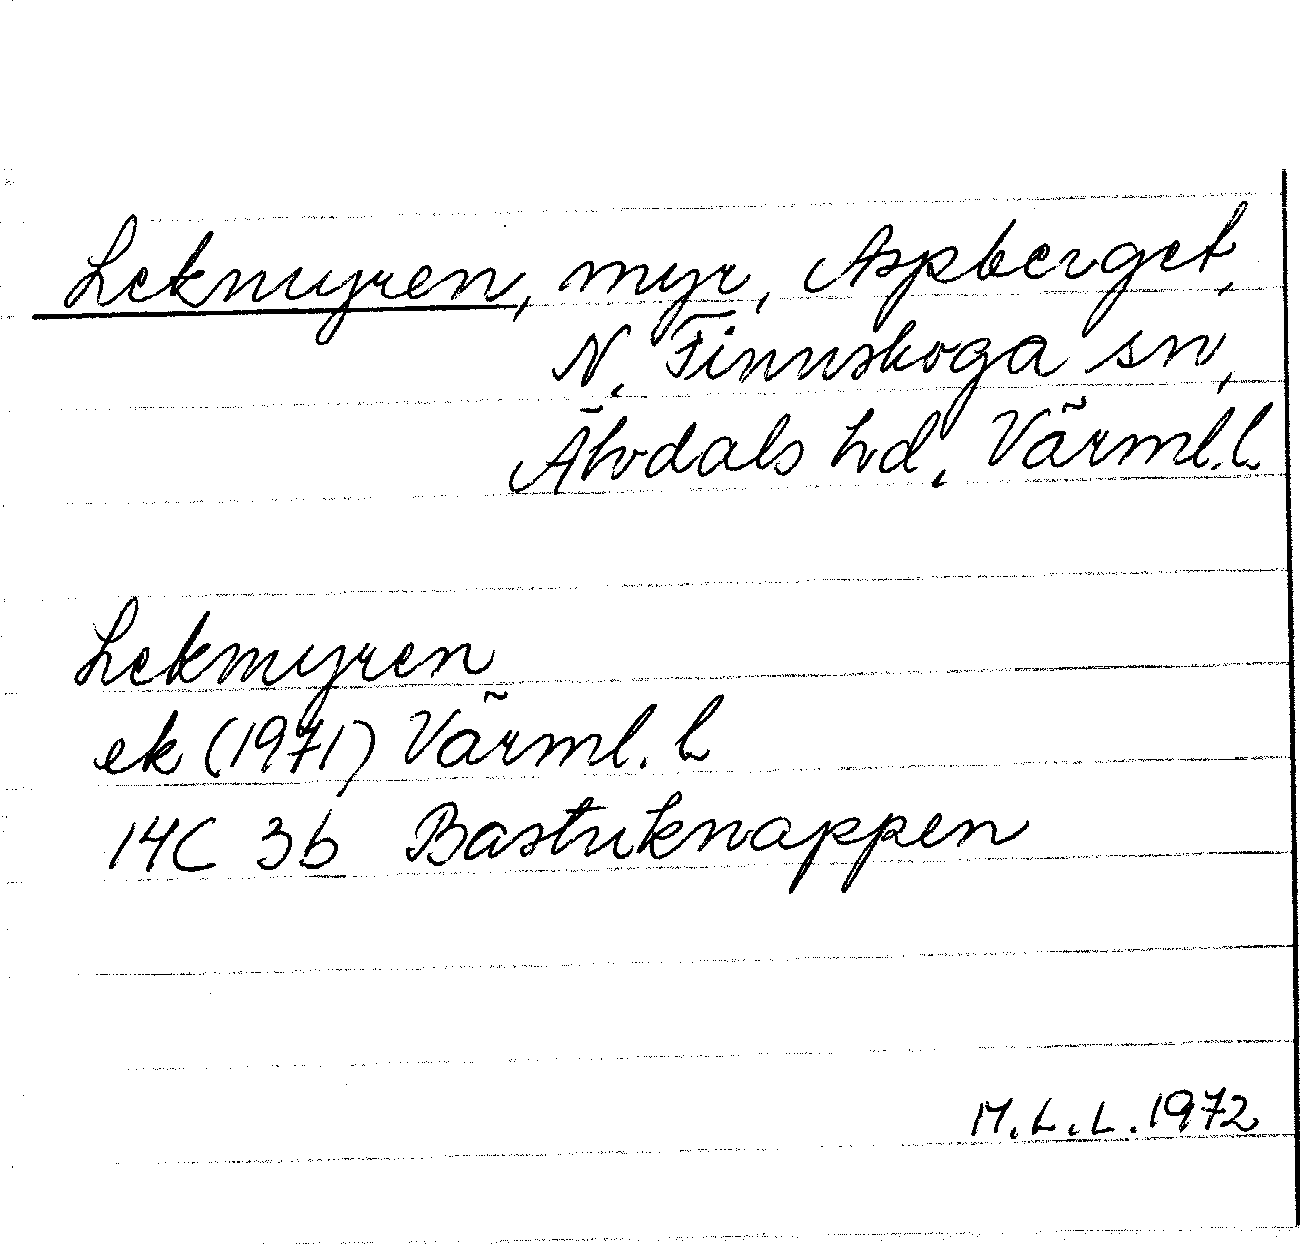 Lekmyren, myr, Aspberget,
N. Finnskoga sn,
Älvdals hd, Värml.l.
Lekmyren
ek (1971) Värml. l
14C 3b Bastuknappen
M.L.L. 1972